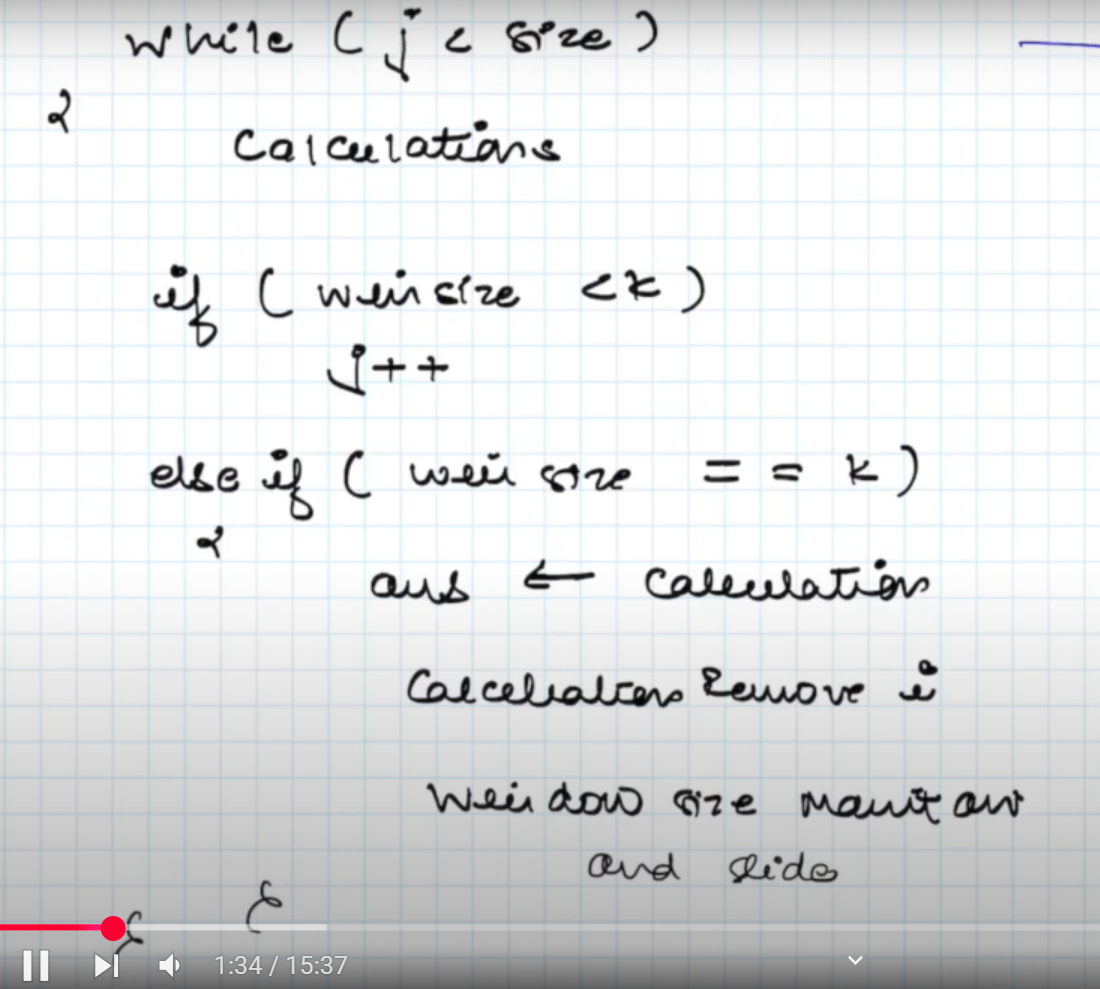 while ( j < size )
{
Calculations
if ( win size < k )
j++
else if ( win size == k )
{
ans ← calculation
Calculations Remove i
Window size maintain
and slide
}
}
1:34 / 15:37